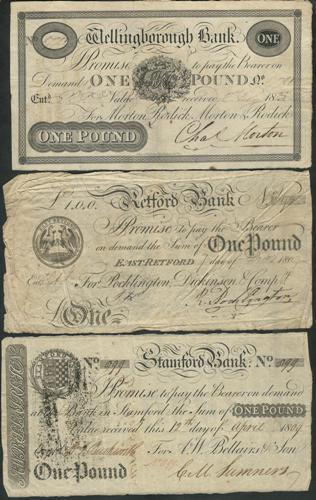 Wellingborough Bank. ONE
I Promise to pay the Bearer on
Demand ONE POUND
Ent.d Value received 18
For Morton Rodick Morton & Rodick
ONE POUND
Chas Morton
£1.0.0. Retford Bank No
I Promise to pay the Bearer
on demand the Sum of One Pound
EAST RETFORD day of 180
For Pocklington Dickinson & Comp.y
£One
R Pocklington
No 099 Stamford Bank. No 099
I Promise to pay the Bearer on demand
at the Bank in Stamford the Sum of ONE POUND
Value received this 12th day of April 1809
For A.W. Bellairs & Son
One Pound
C M Sumners